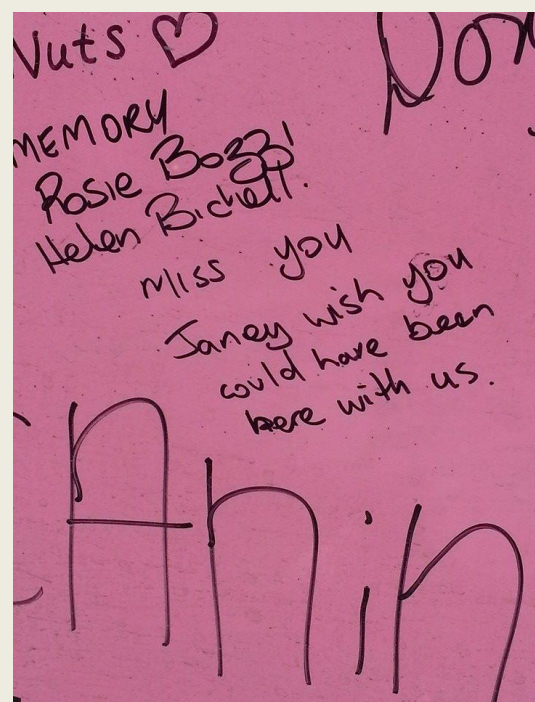 Nuts ♡
MEMORY
Rosie Bozzi
Helen Bichell.
miss you
Janey wish you
could have been
here with us.